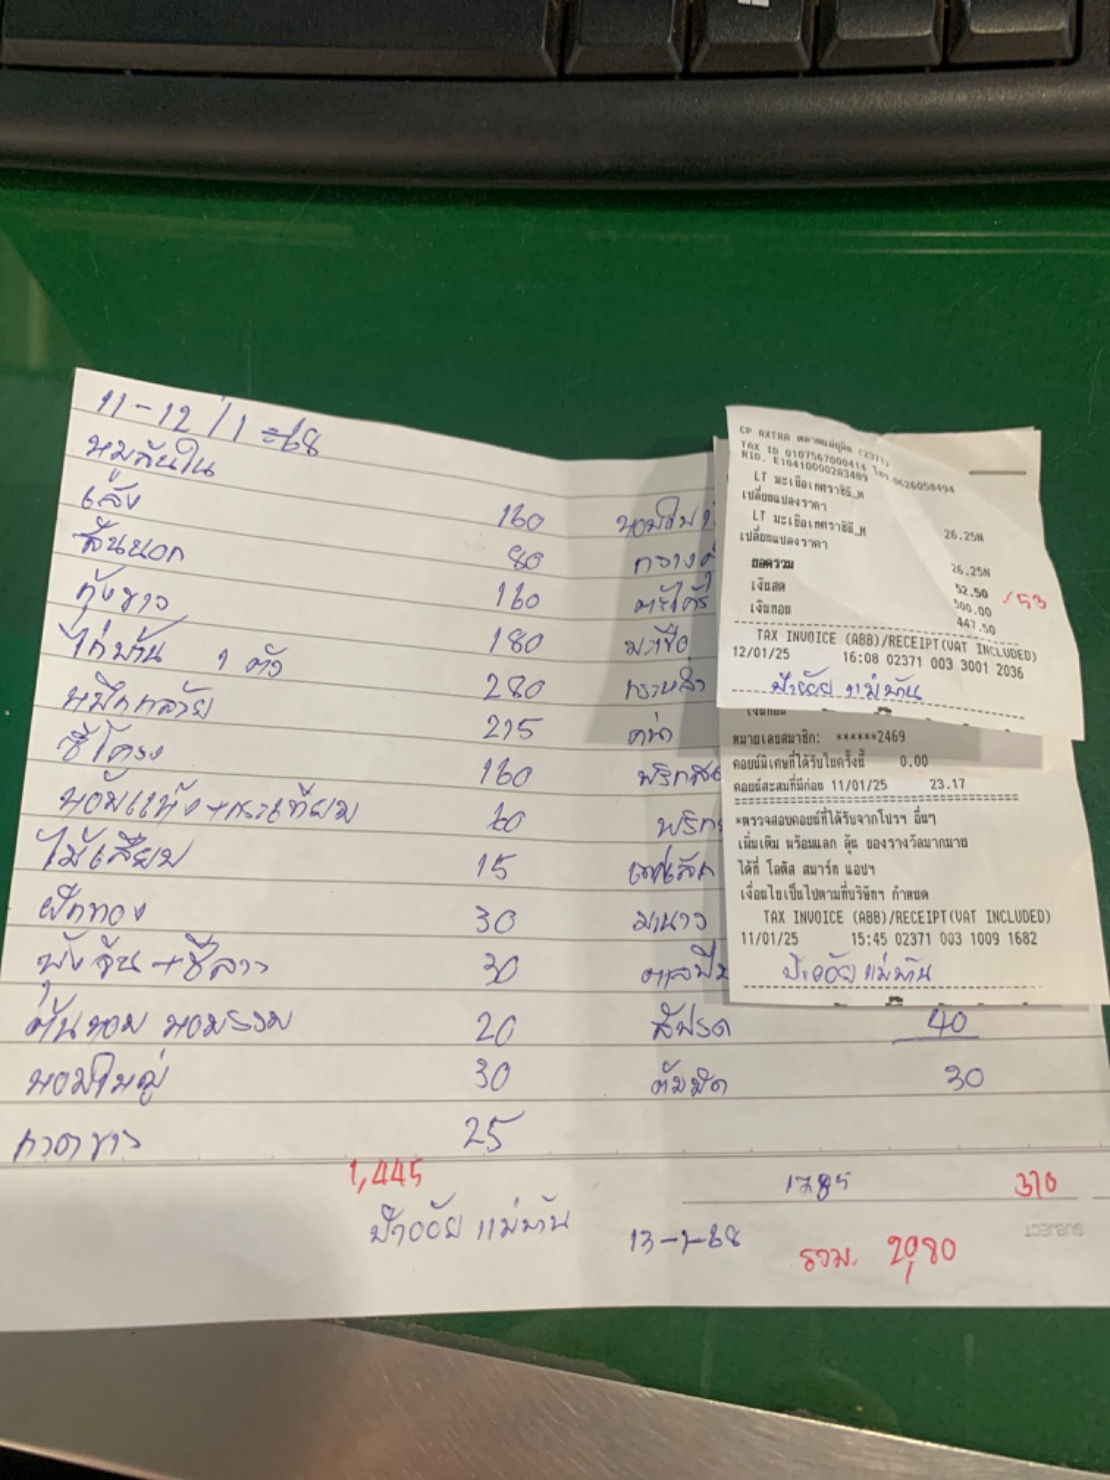 11-12/1=68
หมูสันใน 160
เล้ง 80
สันนอก 160
กุ้งขาว 180
ไก่บ้าน 1 ตัว 280
หมึกกล้วย 215
ซี่โครง 160
หอมแห้ง+กระเทียม 60
ไม้เสียบ 15
ฟักทอง 30
ผักจีน+ชีลาว 30
ต้นหอม หอมรวม 20
หอมใหญ่ 30
กวดขาว 25
1,445
ป้าออ้ย แม่บ้าน
หอมใบ
กวางตุ้ง
ตะไคร้
มะเขือ
กะหล่ำ
คะน้า
พริก
พริก
มะนาว
สัปรด 40
ต้มมัด 30
1785
310
13-1-68
รวม. 2,080
SUBJECT
CP AXTRA ตลาดแม่ภูมิต (2371)
TAX ID 0107567000414 โทร.0626058494
RID. E10410000283489
LT มะเขือเทศราชินี_M
เปลี่ยนแปลงราคา 26.25N
LT มะเขือเทศราชินี_M
เปลี่ยนแปลงราคา 26.25N
ยอดรวม 52.50 /53
เงินสด 500.00
เงินทอน 447.50
TAX INVOICE (ABB)/RECEIPT(VAT INCLUDED)
12/01/25 16:08 02371 003 3001 2036
ป้าออ้ย แม่บ้าน
เงินทอน
หมายเลขสมาชิก: ******2469
คอยน์พิเศษที่ได้รับในครั้งนี้ 0.00
คอยน์สะสมที่มีก่อน 11/01/25 23.17
*ตรวจสอบคอยน์ที่ได้รับจากโปรฯ อื่นๆ
เพิ่มเติม พร้อมแลก ลุ้น ของรางวัลมากมาย
ได้ที่ โลตัส สมาร์ท แอปฯ
เงื่อนไขเป็นไปตามที่บริษัทฯ กำหนด
TAX INVOICE (ABB)/RECEIPT(VAT INCLUDED)
11/01/25 15:45 02371 003 1009 1682
ป้าออ้ย แม่บ้าน